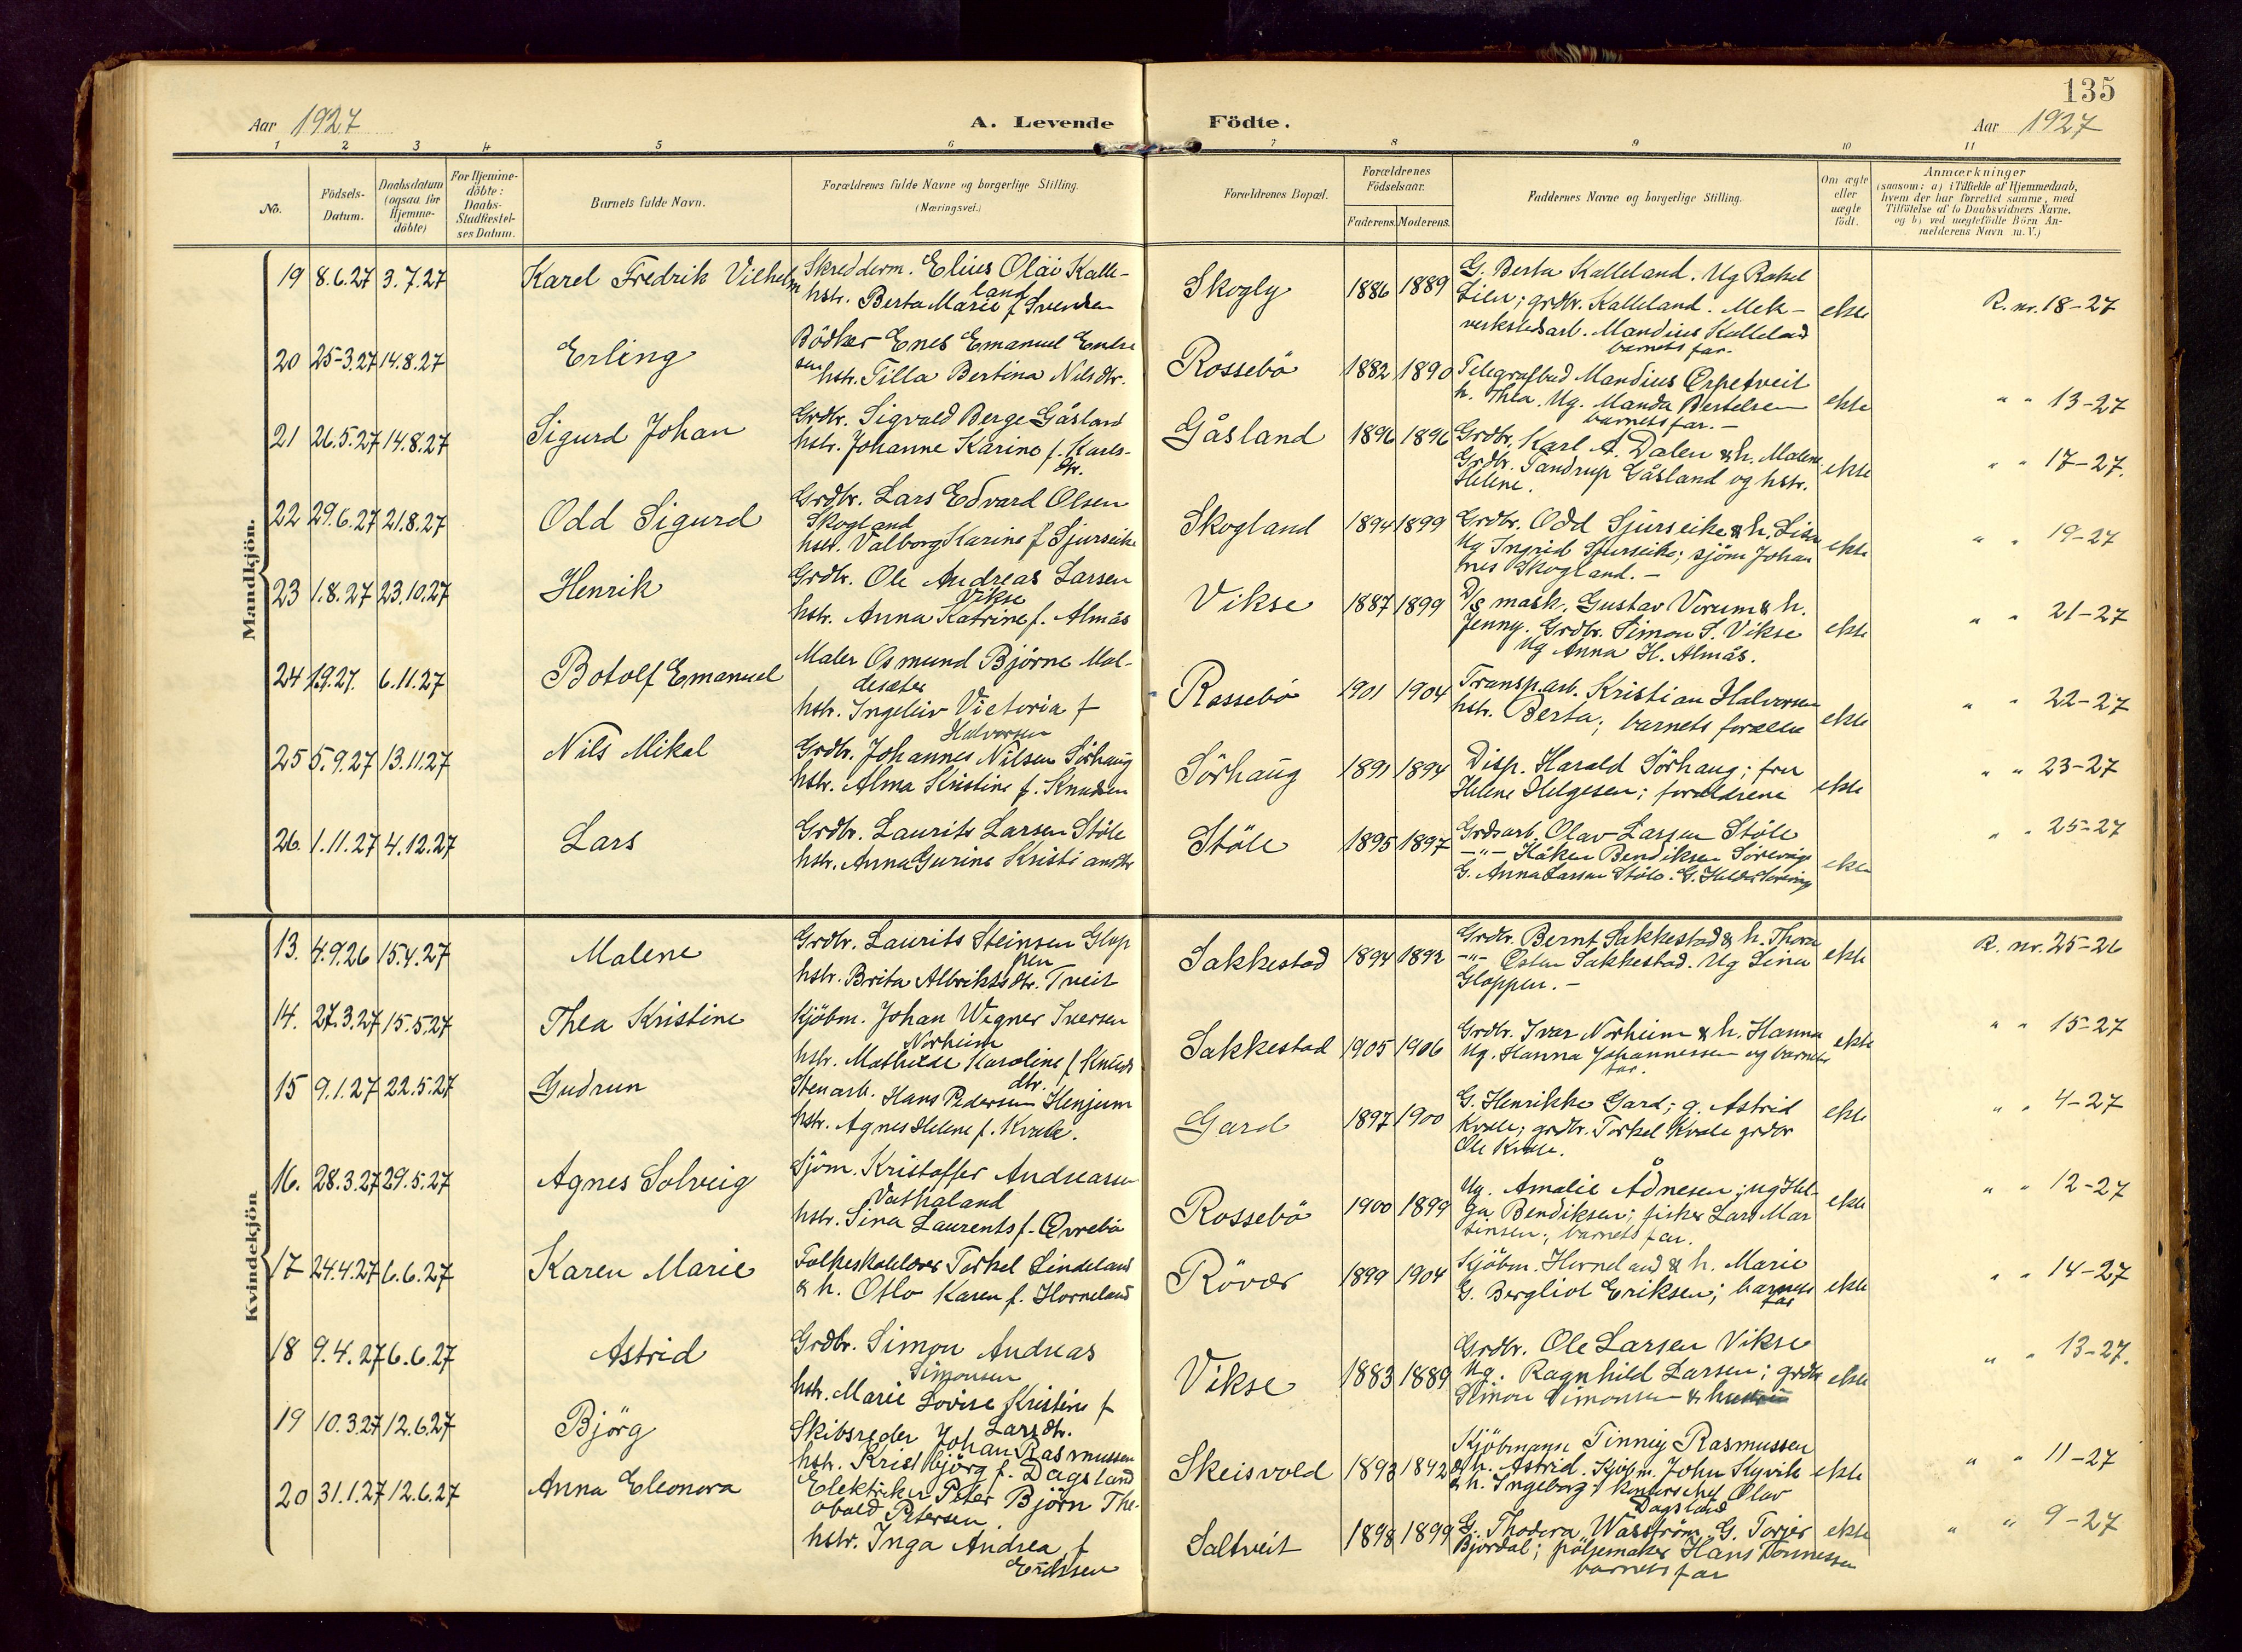 135
Aar 1927
A. Levende Födte.
Aar 1927
1 2 3 4 5 6 7 8 9 10 11
No.
Födsels-Datum.
Daabsdatum (ogsaa for Hjemme-döbte)
For Hjemme-döbte: Daabs-Stadfæstel-ses Datum.
Barnets fulde Navn.
Forældrenes fulde Navne og borgerlige Stilling.
(Næringsvei.)
Forældrenes Bopæl.
Forældrenes Födselsaar.
Faderens. Moderens.
Faddernes Navne og borgerlige Stilling.
Om ægte eller uægte födt.
Anmærkninger
(saasom: a) i Tilfælde af Hjemmedaab,
hvem der har forrettet samme, med
Tilföielse af to Daabsvidners Navne,
og b) ved uægtefödte Börn An-
melderens Navn m. V.)
Mandkjön.
19 8.6.27 3.7.27 Karel Fredrik Vilhelm
Skredderm. Elius Olai Kalle-
land
hstr. Berta Marie f Svendsen
Skogly 1886 1889
G. Berta Kalleland. Ug Rakel
Lien; grdbr. Kalleland. Mek-
verkstedsarb. Mandius Kalleland
barnets far.
ekte R. nr. 18-27
20 25-3.27 14.8.27 Erling
Bödker Enes Emanuel Endre
sen
hstr. Tilla Bertina Nilsdtr.
Rossebö 1882 1890
Telegrafbud Mandius Espetveit
h. Thea. Ug. Manda Bertelsen
barnets far. -
ekte " " 13-27
21 26.5.27 14.8.27 Sigurd Johan
Grdbr. Sigvald Berge Gåsland
hstr. Johanne Karine f. Karls-
dtr.
Gåsland 1896 1896
Grdbr. Karl A. Dalen & h. Malene
Grdbr. Tandrup Gåsland og hstr.
Helene.
ekte " " 17-27.
22 29.6.27 21.8.27 Odd Sigurd
Grdbr. Lars Edvard Olsen
Skogland
hstr. Valborg Karine f Sjurseike
Skogland 1894 1899
Grdbr. Odd Sjurseike & h. Lisa
Ug Ingrid Sjurseike; sjöm Johan
nes Skogland. -
ekte " " 19-27
23 1.8.27 23.10.27 Henrik
Grdbr. Ole Andreas Larsen
Vikse
hstr. Anna Katrine f. Almås
Vikse 1887 1899
D/s mask. Gustav Vorum & h.
Jenny. Grdbr. Simon S. Vikse
Ug Anna H. Almås.
ekte " " 21-27
24 1.9.27. 6.11.27 Botolf Emanuel
Maler Osmund Björne Mol-
desæter
hstr. Ingeleiv Victoria f
Halvorsen
Rossebö 1901 1904
Transp.arb. Kristian Halvorsen
hstr. Berta; barnets foreldre
ekte " " 22-27
25 5.9.27 13.11.27 Nils Mikal
Grdbr. Johannes Nilsen Sörhaug
hstr. Alma Kristine f. Knudsen
Sörhaug 1891 1894
Disp. Harald Sörhaug; fru
Helene Helgesen; foreldrene
ekte " " 23-27
26. 1.11.27 4.12.27 Lars
Grdbr. Laurits Larsen Stöle
hstr. Anna Gurine Kristiansdtr
Stöle 1895 1897
Grdsarb. Olav Larsen Stöle
-"- Håken Bendiksen
G. Anna Larsen Stöle. G.
ekte " " 25-27
Kvindekjön
13. 4.9.26 15.4.27 Malene
Grdbr. Laurits Steinsen Glop
pen
hstr. Brita Albriktsdtr. Tveit
Sakkestad 1894 1892
Grdbr. Bernt Sakkestad & h. Thora
-"- Östen Sakkestad. Ug Lina
Gloppen. -
ekte R. nr. 25-26
14. 27.3.27 15.5.27 Thea Kristine
Kjöbm. Johan Wegner Iversen
Norheim
hstr. Mathilde Karoline f Knuds
dtr.
Sakkestad 1905 1906
Grdbr. Ivar Norheim & h. Hanna
Ug. Hanna Johannessen og barnets
far.
ekte " " 15-27
15 9.1.27 22.5.27 Gudrun
Stenarb. Hans Pedersen Henjum
hstr. Agnes Helene f. Kvale.
Gard 1897 1900
G. Henrikke Gard; g. Astrid
Kvale; grdbr. Torkel Kvale grdbr
Ole Kvale.
ekte " " 4-27
16. 28.3.27 29.5.27 Agnes Solveig
Sjöm. Kristoffer Andreasen
Vashaland
hstr. Sina Laurents f. Ovrebö
Rossebö 1900 1899
Ug. Amalie Ådnesen; ug Hel-
ga Bendiksen; fisker Lars Mar
tinsen; barnets far.
ekte " " 12-27
17 24.4.27 6.6.27 Karen Marie
Folkeskolelærer Torkel Lindeland
& h. Otlo Karen f. Horneland
Rövær 1899 1904
Kjöbm. Horneland & h. Marie
G. Bergliot Eriksen; barnets
far
ekte " " 14-27
18 9.4.27 6.6.27 Astrid
Grdbr. Simon Andreas
Simonsen
hstr. Marie Lovise Kristine f
Larsdtr.
Vikse 1883 1889
Grdbr. Ole Larsen Vikse
Ug. Ragnhild Larsen; grdbr
Simon Simonsen & hustru
ekte " " 13-27.
19 10.3.27 12.6.27 Björg
Skibsreder Johan Rasmussen
hstr. Kristbjörg f. Dagsland
Skeisvold 1893 1892
Kjöbmann Finneij Rasmussen
& h. Astrid. Kjöbm. John Kyvik
& h. Ingeborg; kontorschef Olav
Dagsland
ekte " " 11-27
20 31.1.27 12.6.27 Anna Eleonora
Elektriker Peter Björn The-
obald Petersen.
hstr. Inga Andrea f
Eriksen
Saltveit 1898 1899
G. Thodora Wasström. G. Torjer
Bjordal; pölsemaker Hans Tonnessen
barnets far
ekte " " 9-27